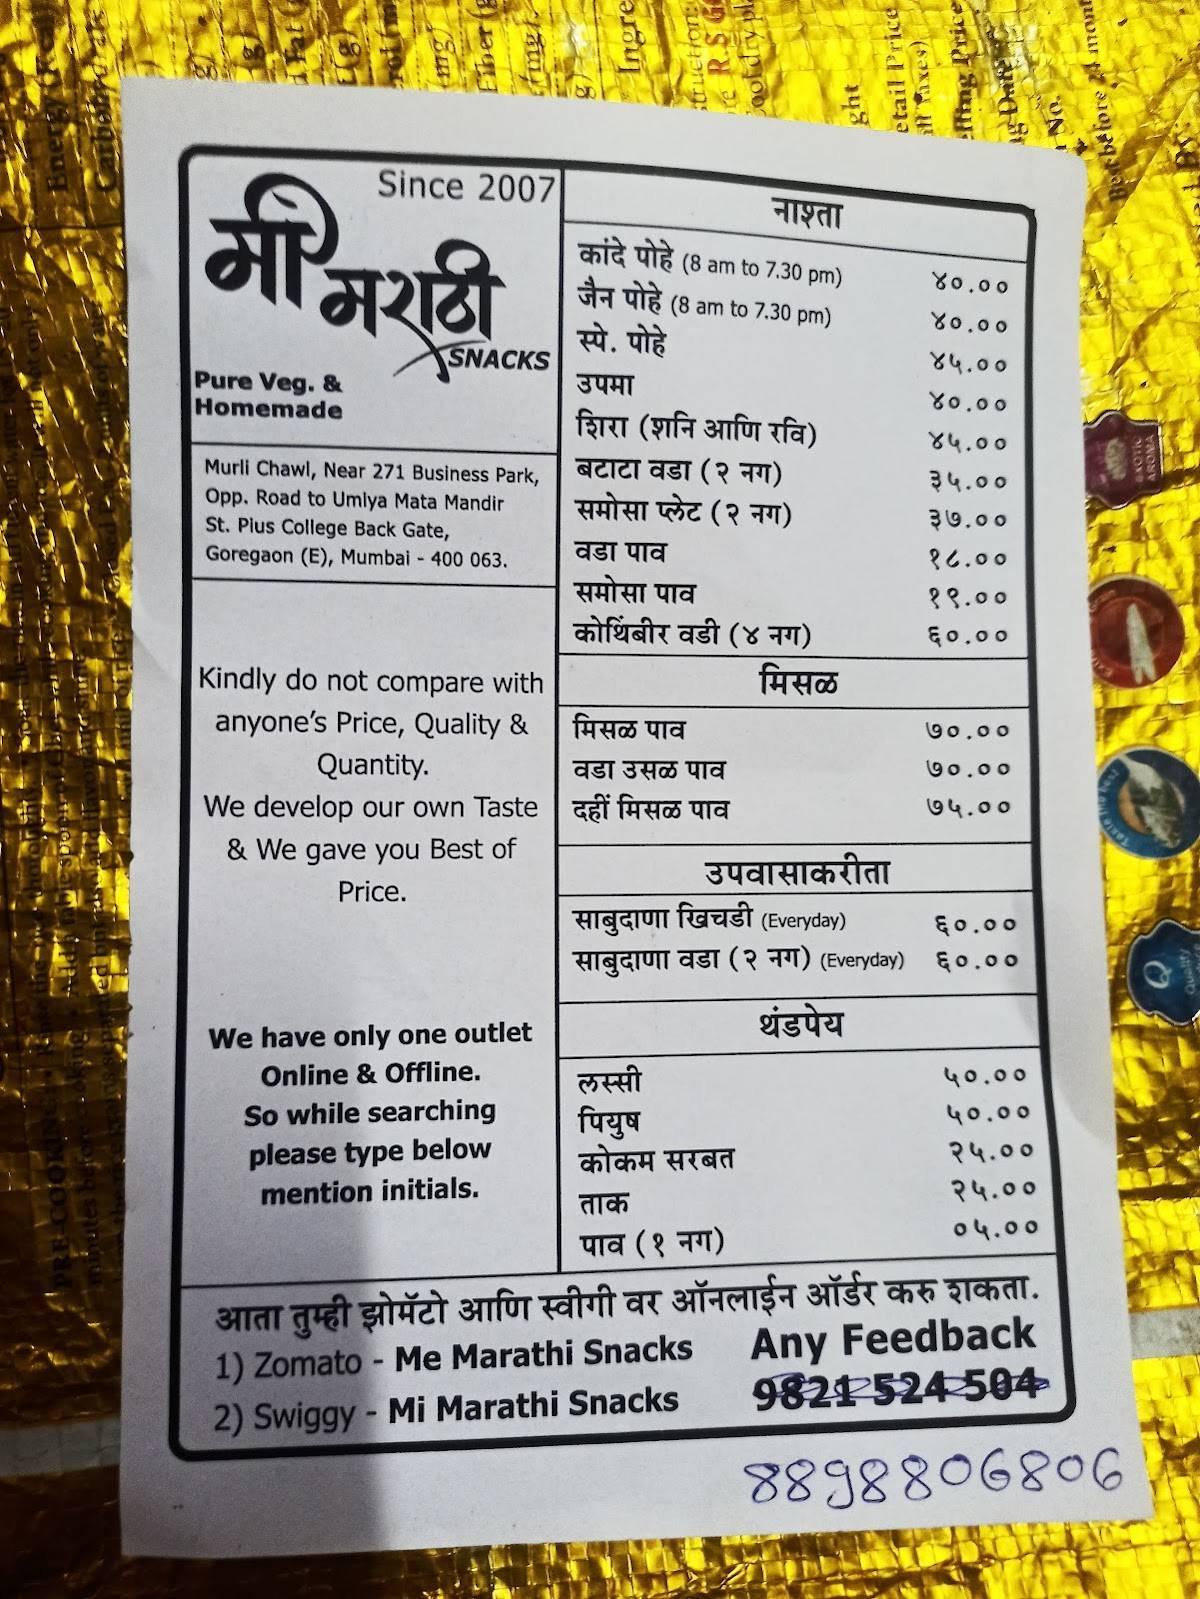 Since 2007
मी मराठी
SNACKS
Pure Veg. &
Homemade
Murli Chawl, Near 271 Business Park,
Opp. Road to Umiya Mata Mandir
St. Pius College Back Gate,
Goregaon (E), Mumbai - 400 063.
Kindly do not compare with
anyone's Price, Quality &
Quantity.
We develop our own Taste
& We gave you Best of
Price.
We have only one outlet
Online & Offline.
So while searching
please type below
mention initials.
नाश्ता
कांदे पोहे (8 am to 7.30 pm) ४०.००
जैन पोहे (8 am to 7.30 pm) ४०.००
स्पे. पोहे ४५.००
उपमा ४०.००
शिरा (शनि आणि रवि) ४५.००
बटाटा वडा (२ नग) ३५.००
समोसा प्लेट (२ नग) ३७.००
वडा पाव १८.००
समोसा पाव १९.००
कोथिंबीर वडी (४ नग) ६०.००
मिसळ
मिसळ पाव ७०.००
वडा उसळ पाव ७०.००
दहीं मिसळ पाव ७५.००
उपवासाकरीता
साबुदाणा खिचडी (Everyday) ६०.००
साबुदाणा वडा (२ नग) (Everyday) ६०.००
थंडपेय
लस्सी ५०.००
पियुष ५०.००
कोकम सरबत २५.००
ताक २५.००
पाव (१ नग) ०५.००
आता तुम्ही झोमॅटो आणि स्वीगी वर ऑनलाईन ऑर्डर करु शकता.
1) Zomato - Me Marathi Snacks
2) Swiggy - Mi Marathi Snacks
Any Feedback
9821 524 504
8898806806